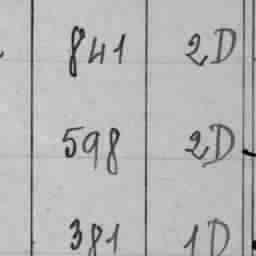 841 2D
598 2D
381 1D